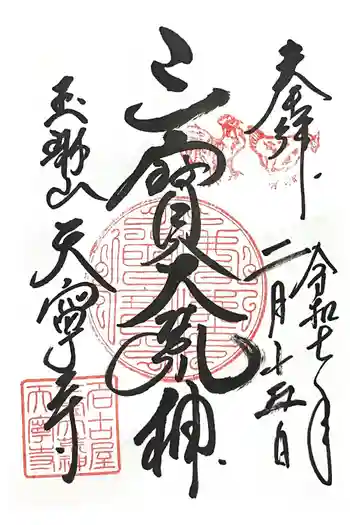 奉拝
令和七年
二月十五日
三寶大荒神
玉雲山 天寧寺
名古屋
天寧寺